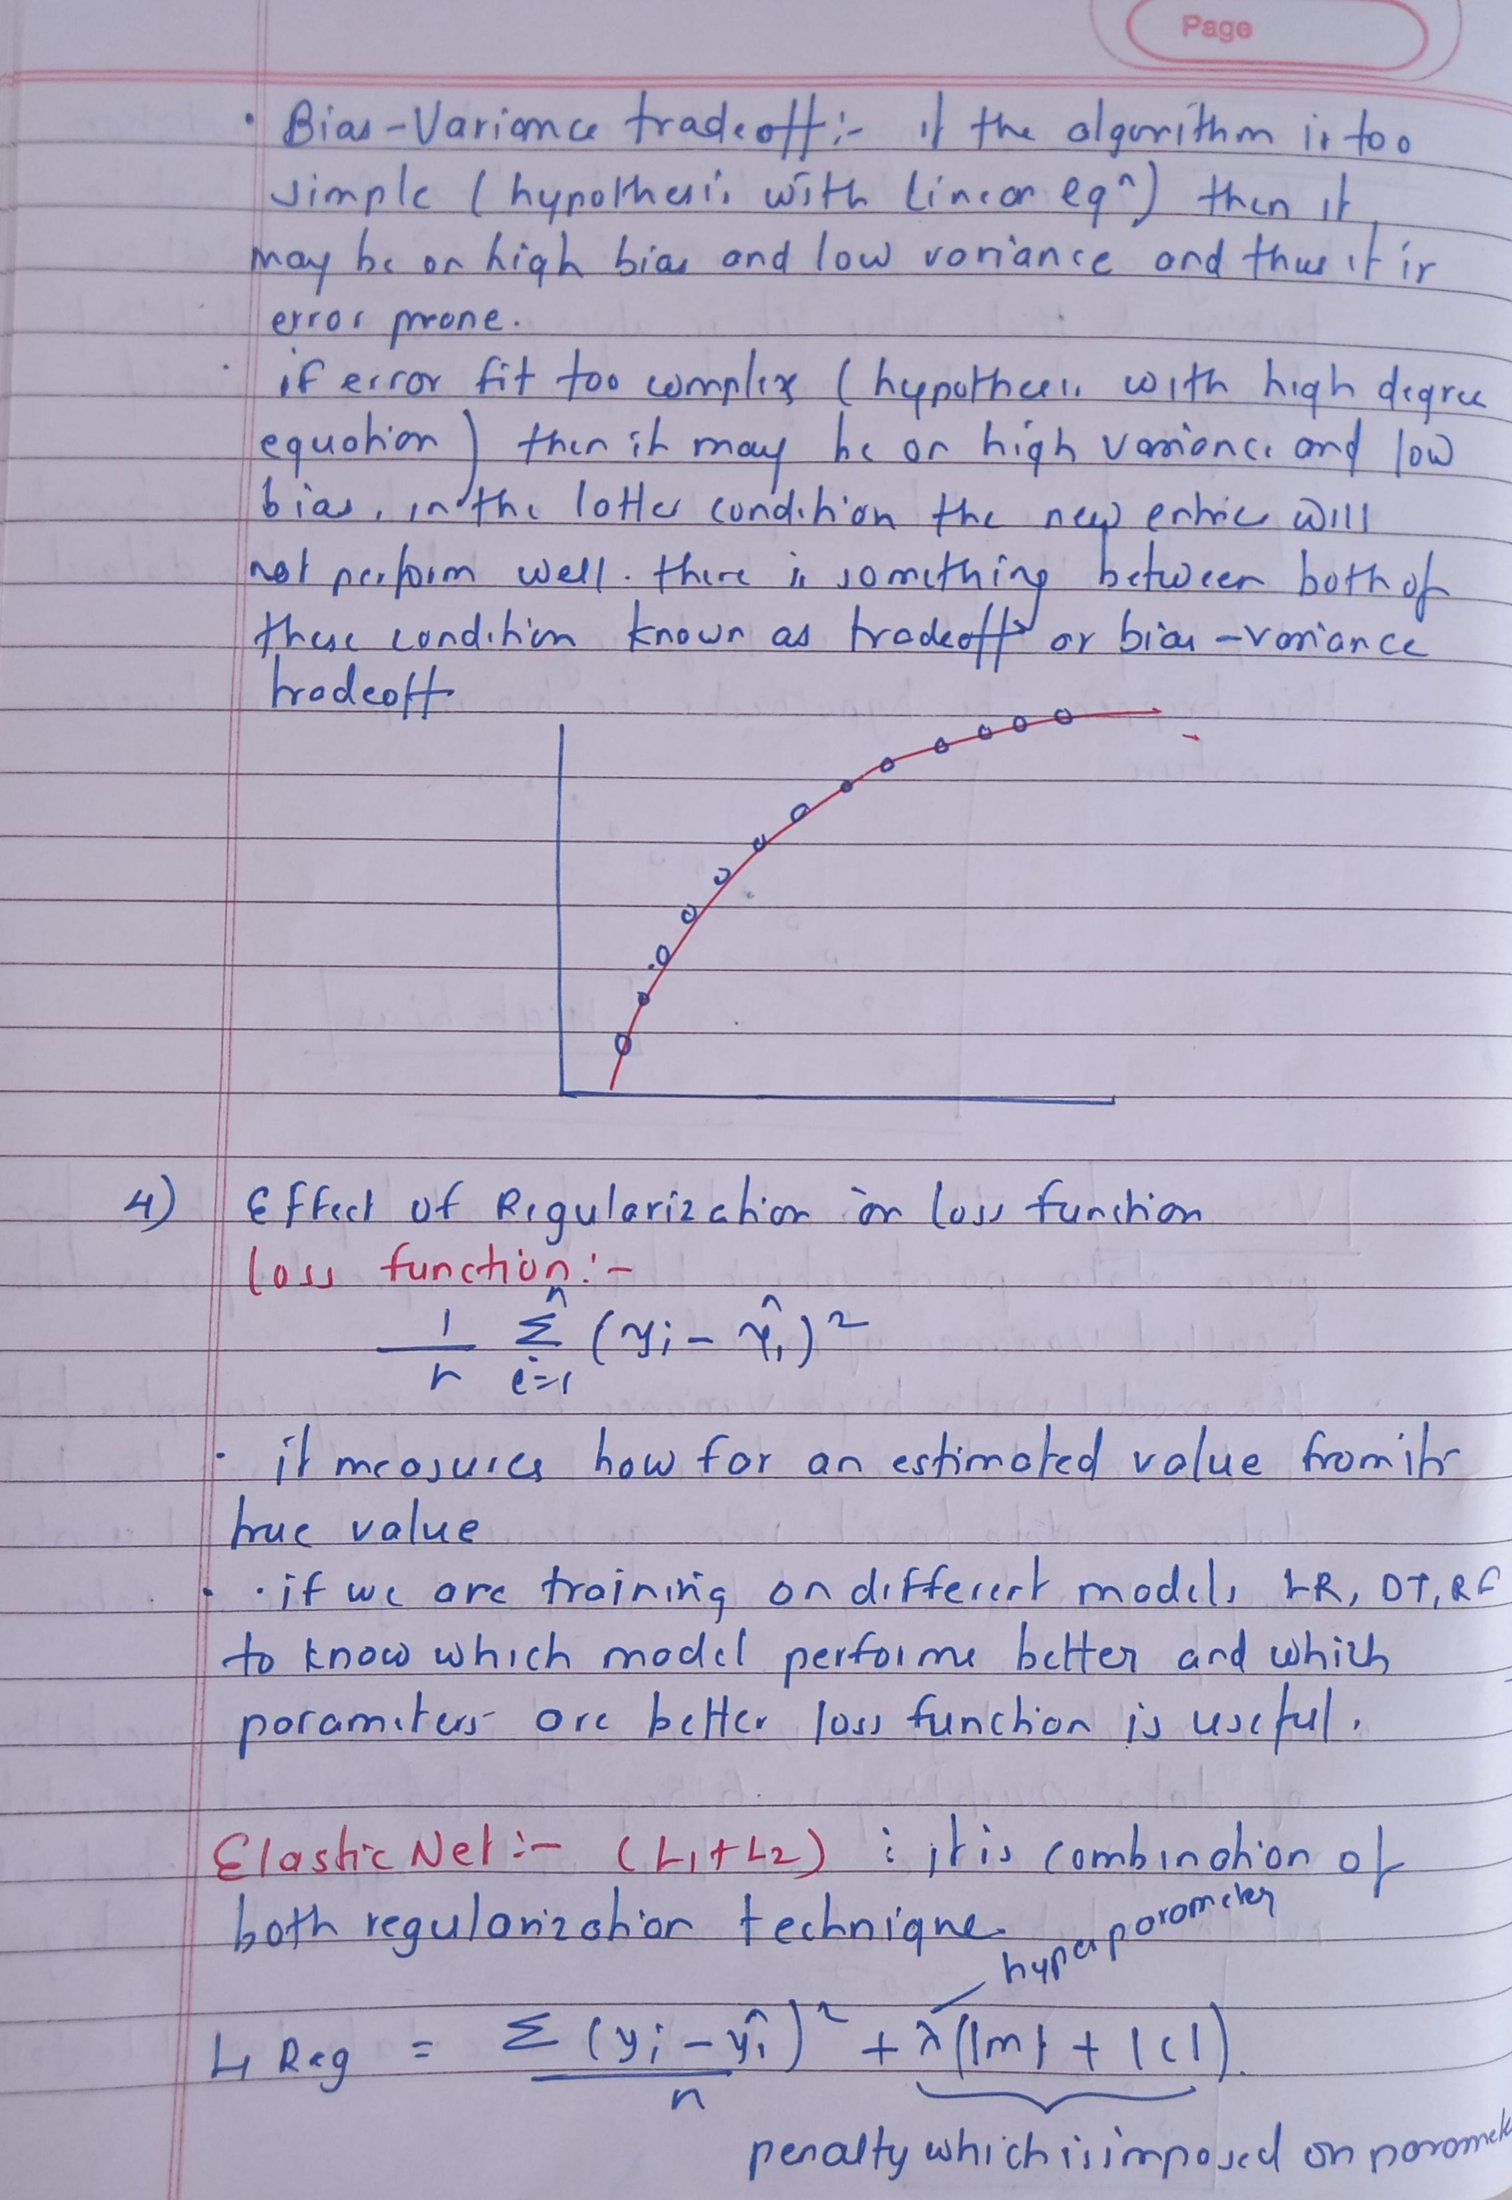 Page
• Bias-Variance tradeoff:- if the algorithm is too
simple (hypothesis with linear eqⁿ) then it
may be on high bias and low variance and thus it is
error prone.
• if error fit too complex (hypothesis with high degree
equation) then it may be on high variance and low
bias, in the latter condition the new entries will
not perform well. there is something between both of
these condition known as tradeoff or bias-variance
tradeoff
4) Effect of Regularization on loss function
loss function:-
1/n Σ_{i=1}^{n} (yi - ŷi)²
• it measures how far an estimated value from its
true value
• if we are training on different models LR, DT, RF
to know which model performs better and which
parameters are better loss function is useful.
Elastic Net:- (L1+L2) : it is combination of
both regularization technique.
hyperparameter
L1 Reg = Σ(yi - ŷi)²/n + λ(|m| + |c|).
penalty which is imposed on